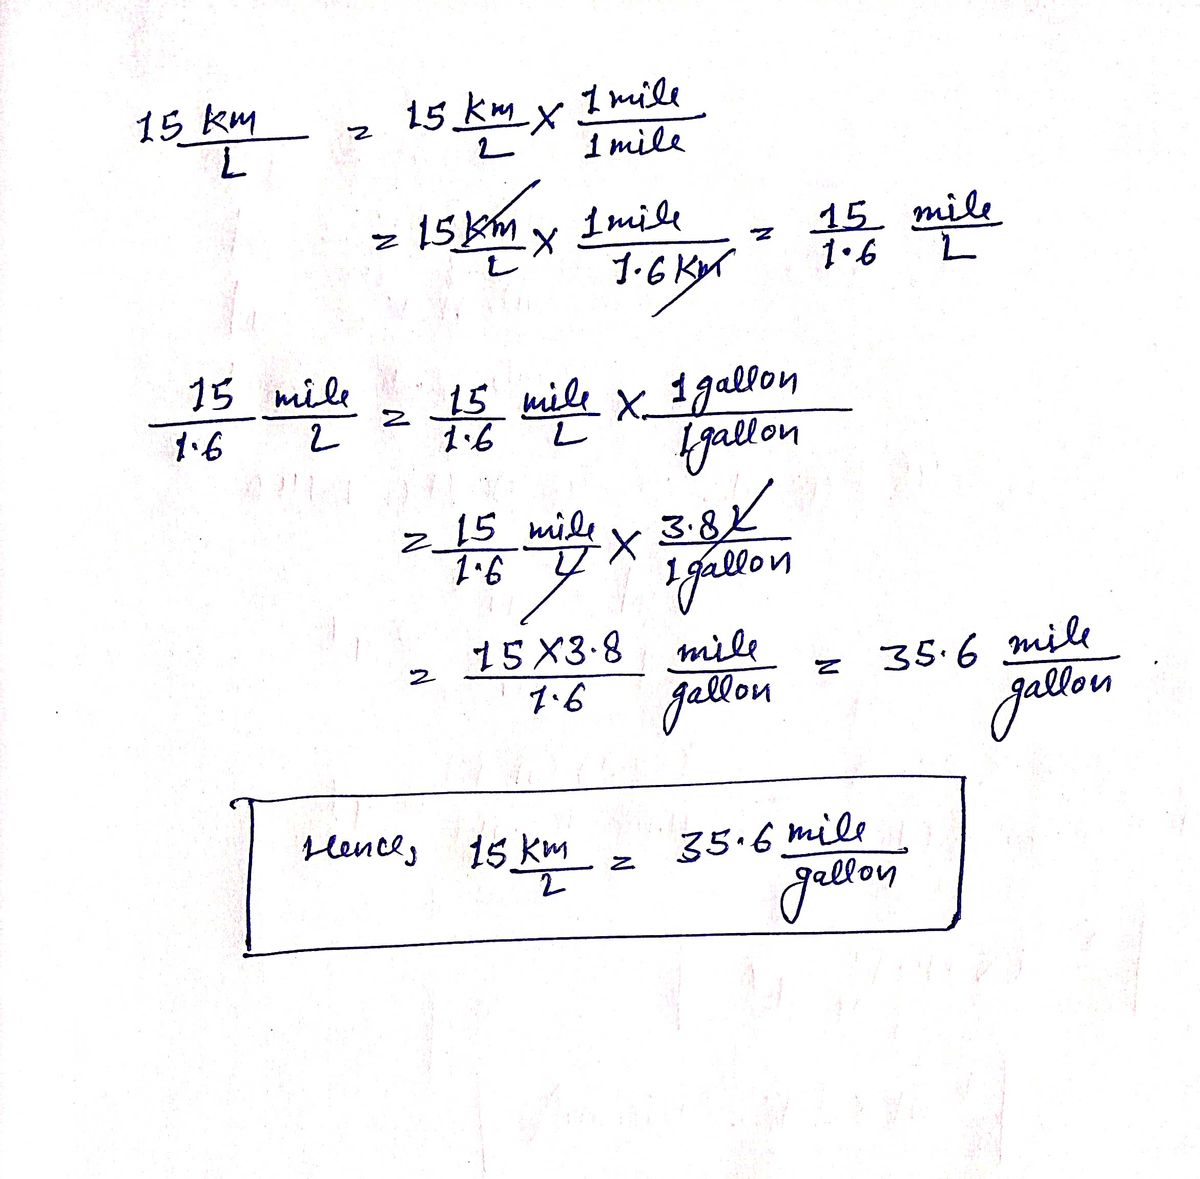 15 km/L = 15 km/L × 1 mile/1 mile
= 15 km/L × 1 mile/1.6 km = 15/1.6 mile/L
15/1.6 mile/L = 15/1.6 mile/L × 1 gallon/1 gallon
= 15/1.6 mile/L × 3.8 L/1 gallon
= 15 × 3.8/1.6 mile/gallon = 35.6 mile/gallon.
Hence, 15 km/L = 35.6 mile/gallon